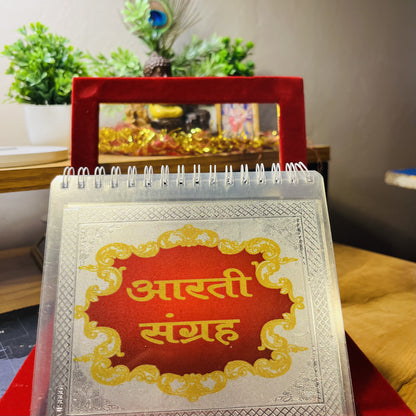 आरती
संग्रह